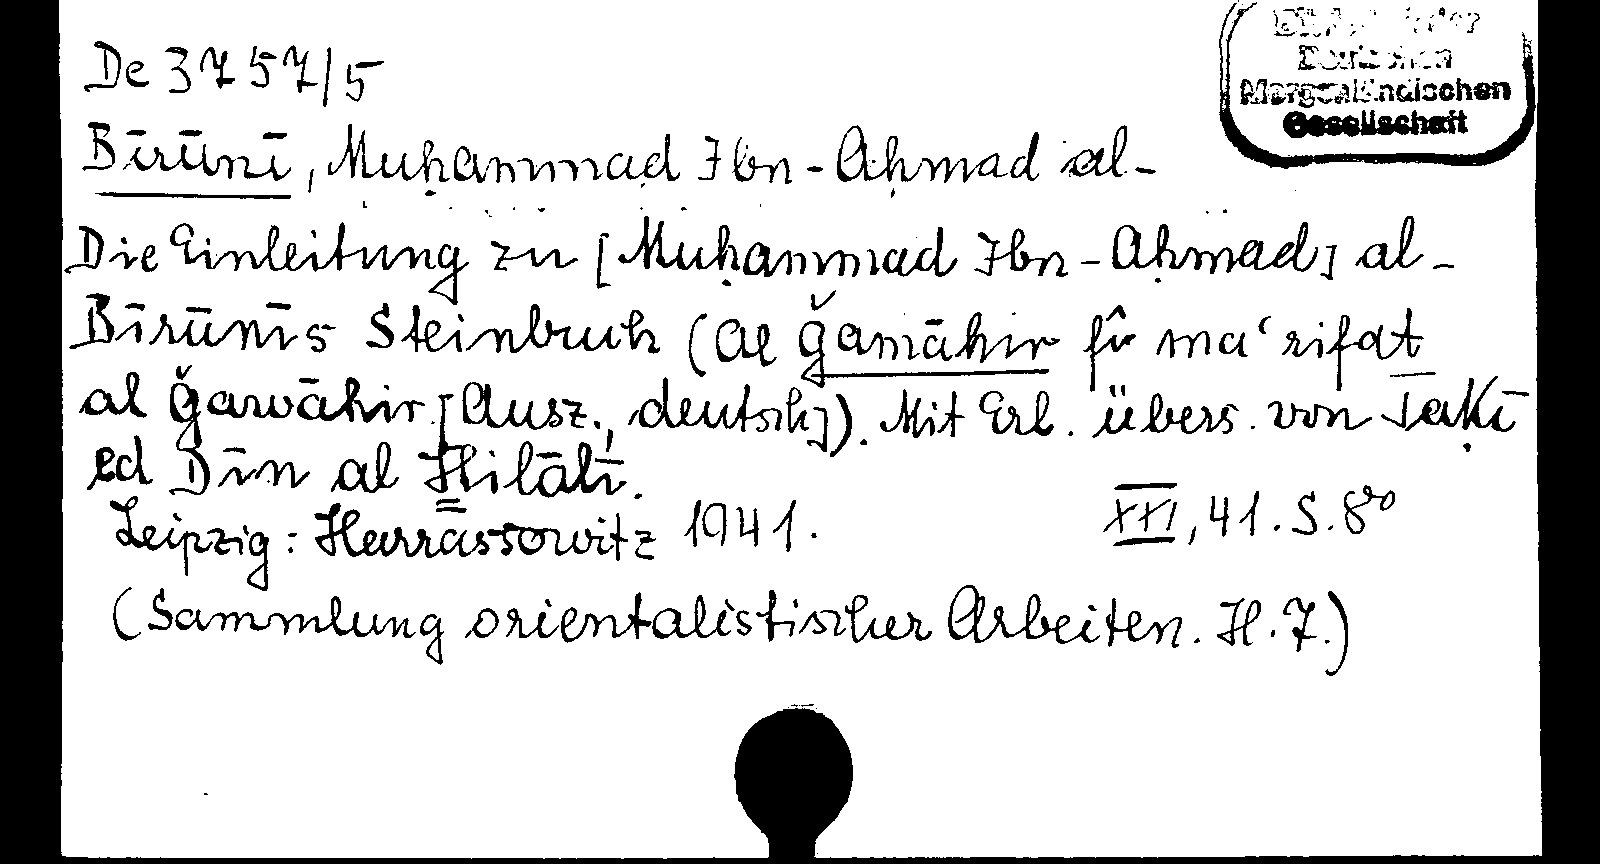 De 3757/5
Bibliothek der
Deutschen
Morgenländischen
Gesellschaft
Bīrūnī, Muḥammad Ibn-Aḥmad al-
Die Einleitung zu [Muḥammad Ibn-Aḥmad] al-
Bīrūnīs Steinbuch (Al ǧamāhir fī maʿrifat
al ǧawāhir [Ausz., deutsch]). Mit Erl. übers. von Taḳī
ed Dīn al Hilālī.
Leipzig: Harrassowitz 1941. XXI, 41. S. 8°
(Sammlung orientalistischer Arbeiten. H. 7.)